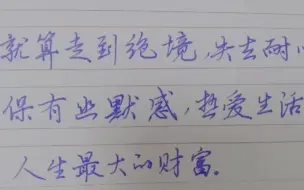 就算走到绝境,失去耐心
保有幽默感,热爱生活
人生最大的财富.